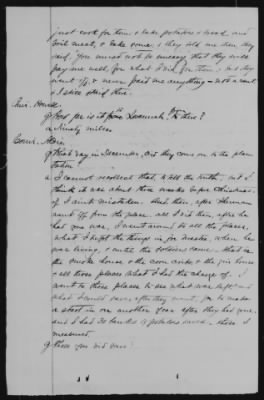 just cook for them, & bake potatoes & bread, and
boil meat, & bake some; & they told me then they
said "You must not be uneasy that they will
pay me well, for what I did for them", & they
went off & never paid me anything - not a cent
& I also
How far is it from Savannah to there?
a Ninety miles
q What day in December, did they come on to the place
a I cannot recollect that, & tell the truth, but I
think it was about three weeks before Christmas,
if I ain't mistaken. And then, after Sherman
went off from the place, all I did then, after he
had gone was, I went around to all the places,
what I kept the things in for master, when he
was living, & until the soldiers came, that is
the smoke house & the corn cribs & the gin house
& all those places what I had the charge of. I
went to those places to see what was left and
what I could save, after they went, for to make
a start in one another year after they had gone,
and I had 30 banks of potatoes saved - those I
measured.
q These you did save?